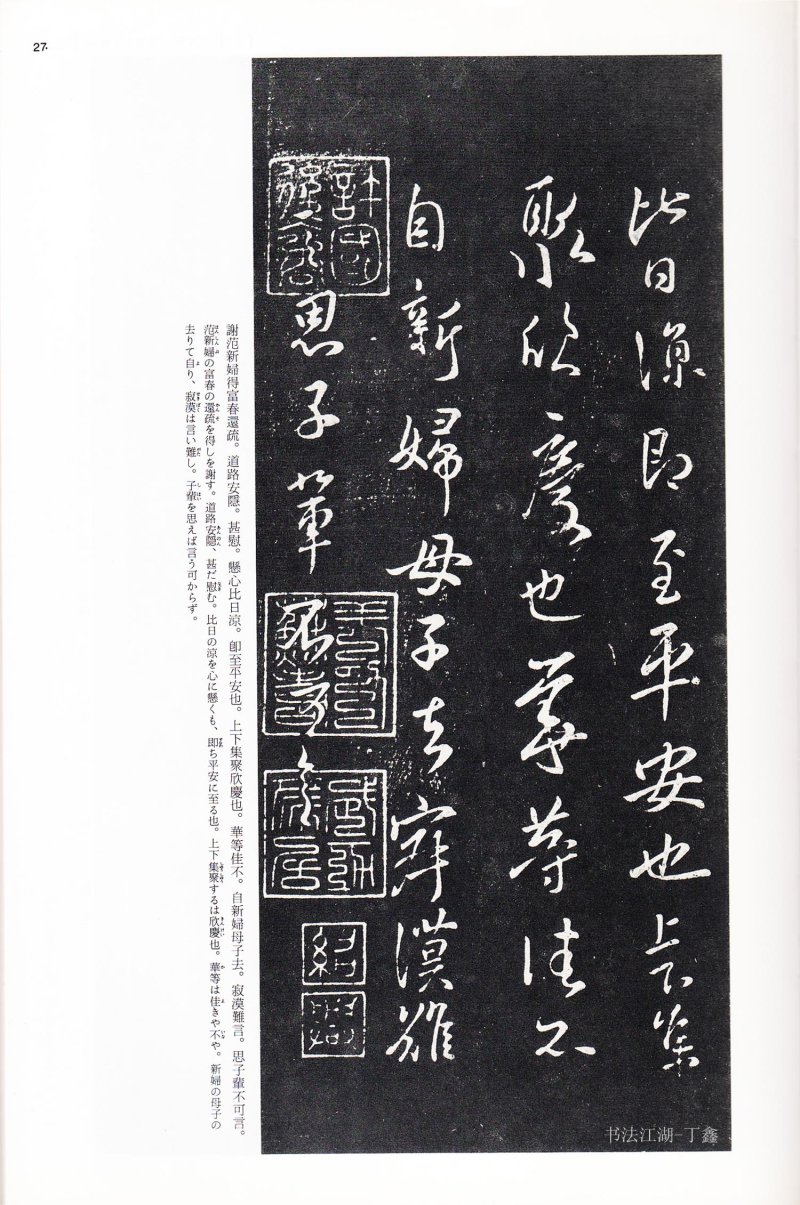 27.
比日涼即至平安也上下集
聚欣慶也華等佳不
自新婦母子去寂漠難
思子輩
紹興
謝范新婦得富春還疏。道路安隱。甚慰。懸心比日涼。卽至平安也。上下集聚欣慶也。華等佳不。自新婦母子去。寂漠難言。思子輩不可言。
范新婦の富春の還疏を得しを謝す。道路安隱、甚だ慰む。比日の涼を心に懸くも、即ち平安に至る也。上下集聚するは欣慶也。華等は佳きや不や。新婦の母子の
去りて自り、寂漠は言い難し。子輩を思えば言う可からず。
书法江湖-丁鑫